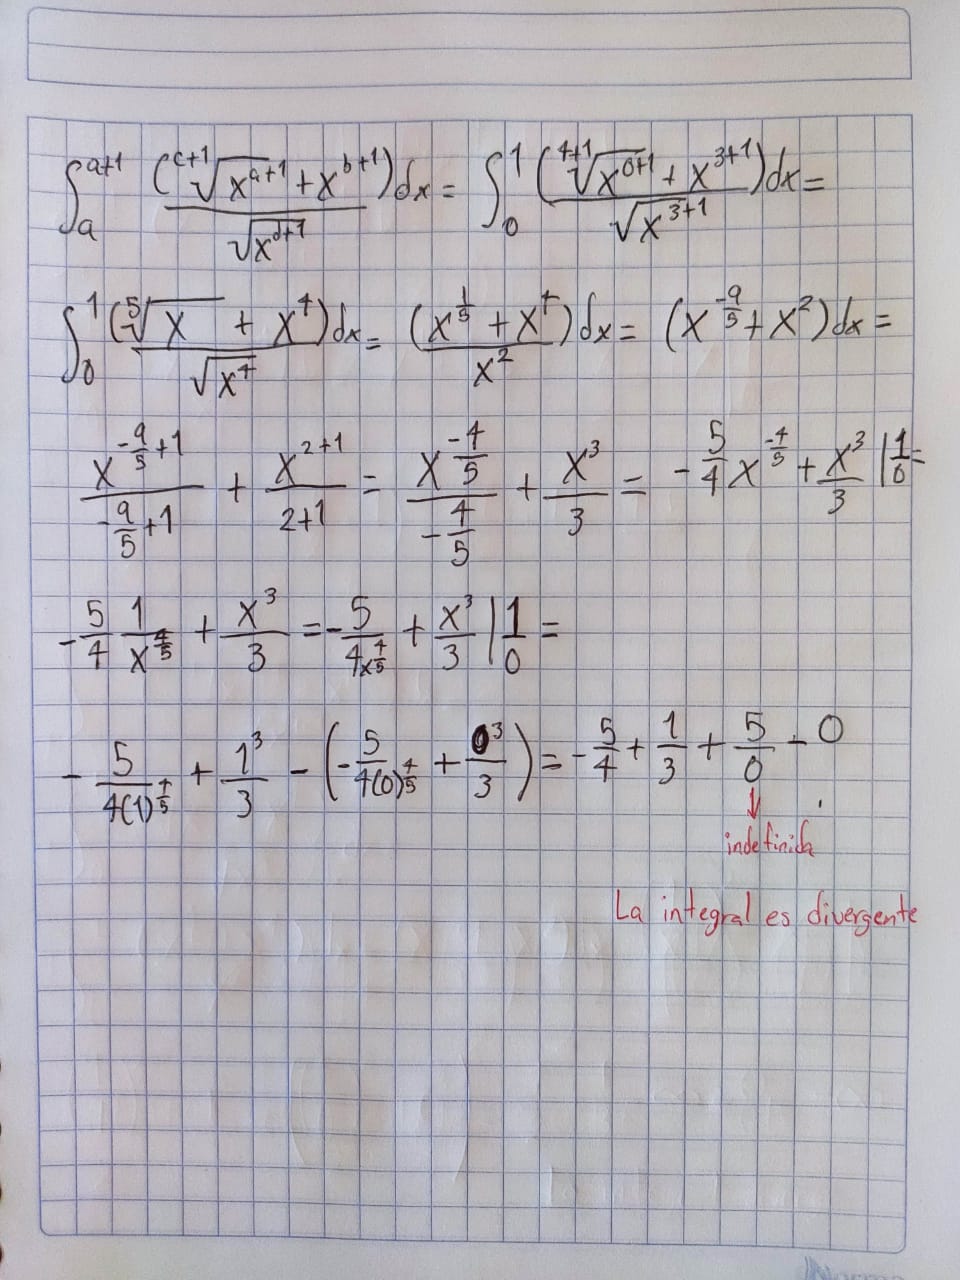 ∫ₐᵃ⁺¹ (ᶜ⁺¹√xᵃ⁺¹ + xᵇ⁺¹)/√xᵈ⁺¹ dx = ∫₀¹ (⁴⁺¹√x⁰⁺¹ + x³⁺¹)/√x³⁺¹ dx =
∫₀¹ (⁵√x + x⁴)/√x⁴ dx = (x^(1/5) + x⁴)/x² dx = (x^(-9/5) + x²)dx =
x^(-9/5+1)/(-9/5+1) + x^(2+1)/(2+1) = x^(-4/5)/(-4/5) + x³/3 = -5/4 x^(-4/5) + x³/3 |¹₀ =
-5/4 1/x^(4/5) + x³/3 = -5/(4x^(4/5)) + x³/3 |¹₀ =
-5/(4(1)^(4/5)) + 1³/3 - (-5/(4(0)^(4/5)) + 0³/3) = -5/4 + 1/3 + 5/0 - 0
indefinida
La integral es divergente